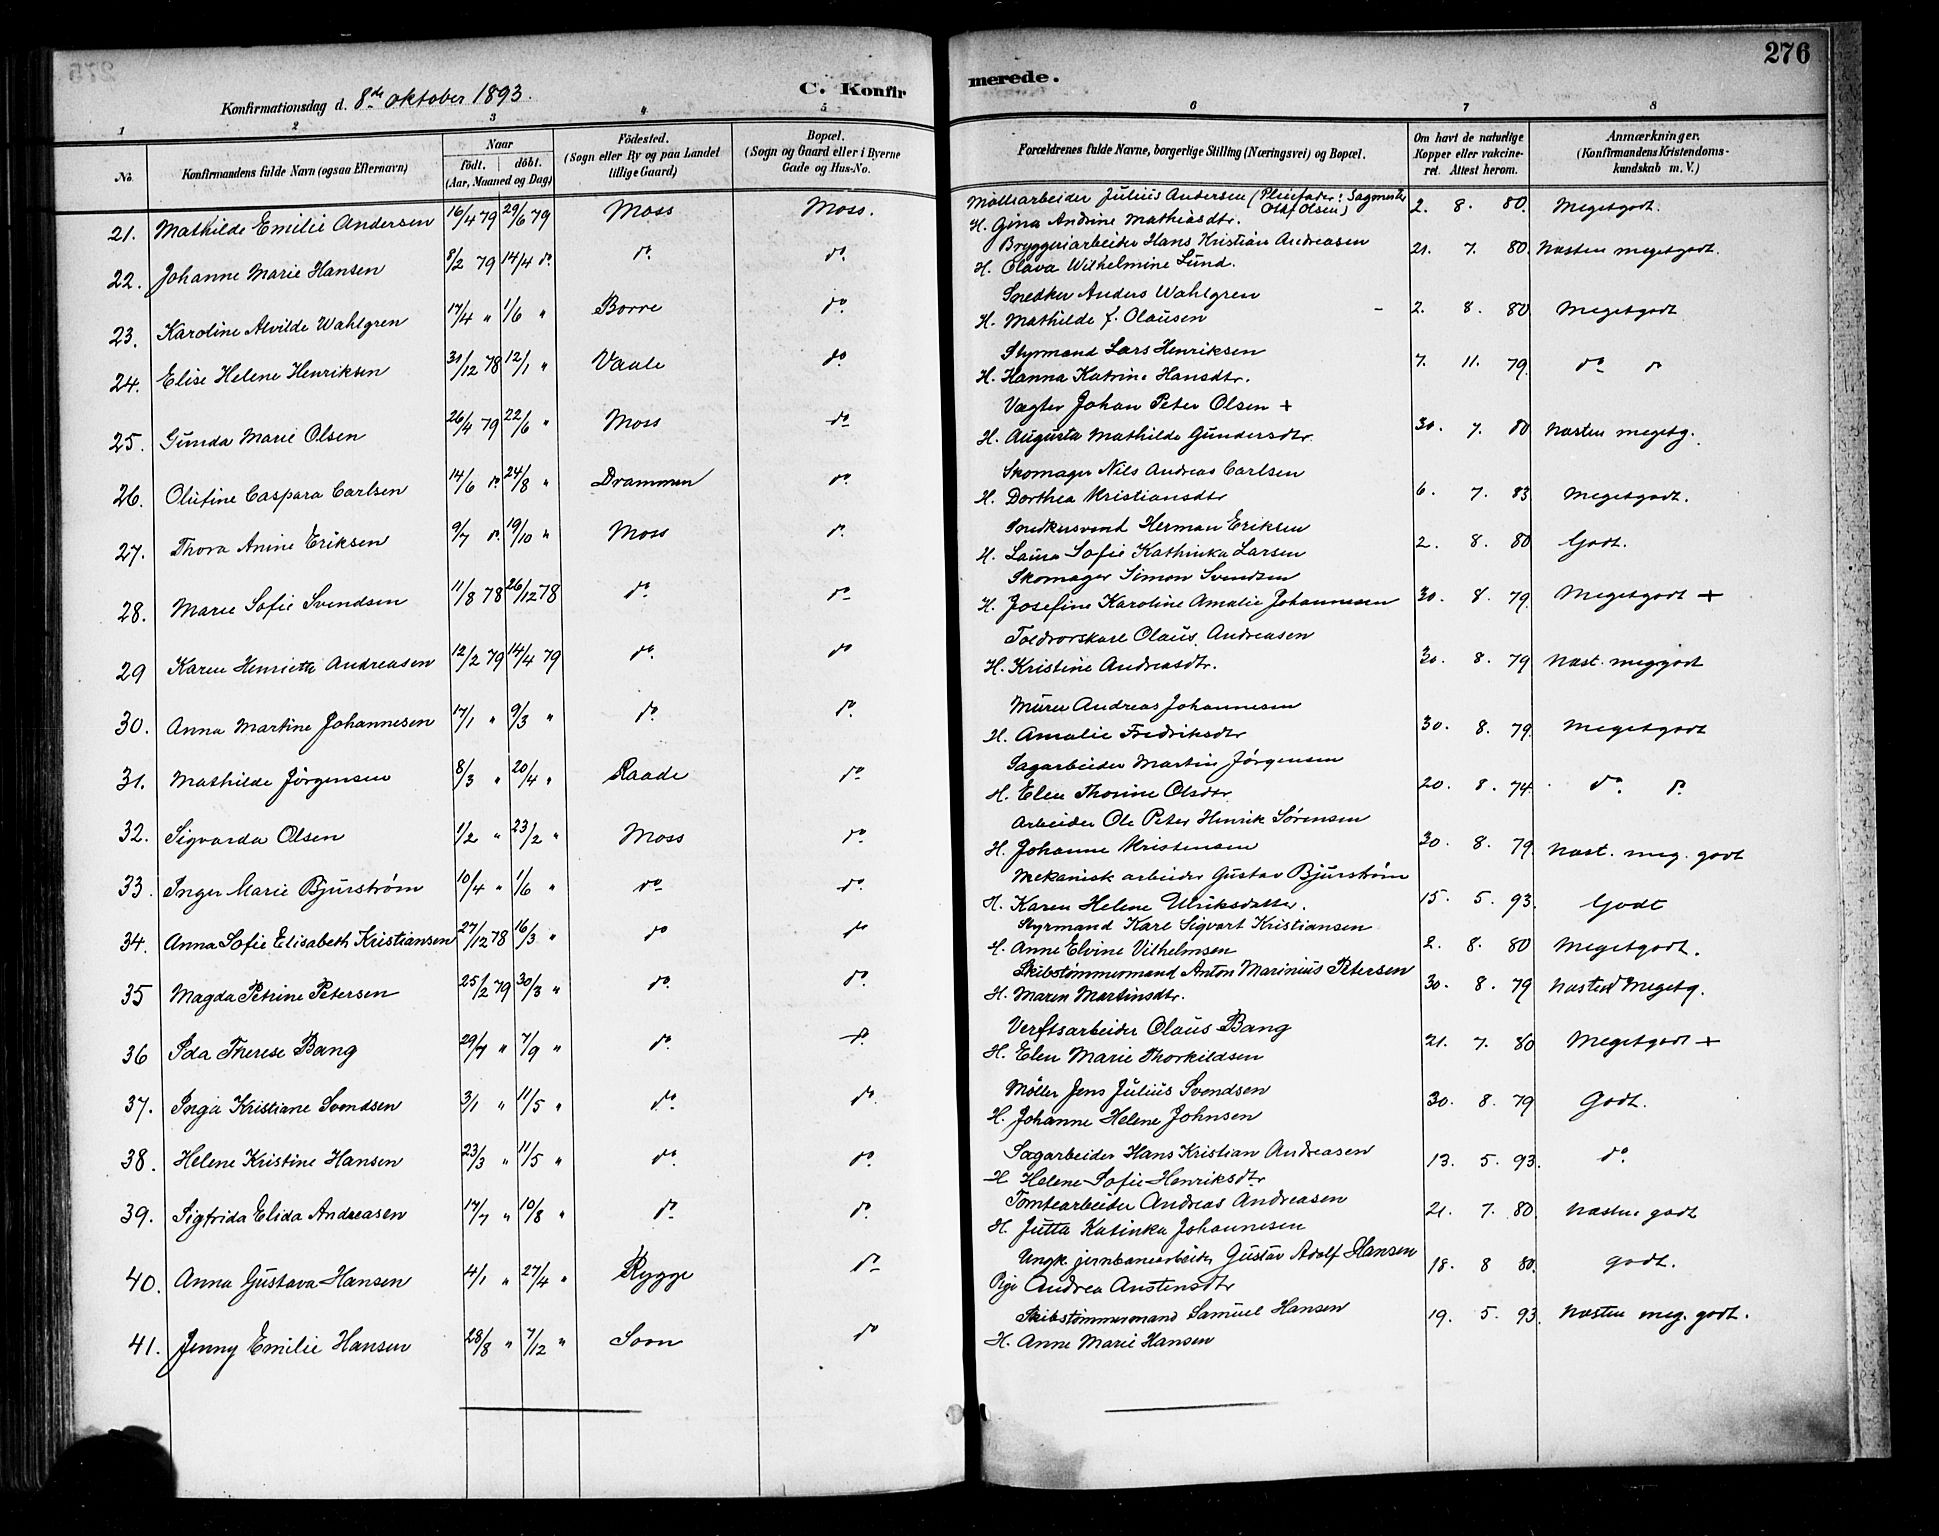 276
Konfirmationsdag d. 8de oktober 1893.
C. Konfirmerede.
1 2 3 4 5 6 7 8
No. Konfirmandens fulde Navn (ogsaa Efternavn) Naar födt. döbt. (Aar, Maaned og Dag) Födested. (Sogn eller By og paa Landet tillige Gaard) Bopæl. (Sogn og Gaard eller i Byerne Gade og Hus-No. Forældrenes fulde Navne, borgerlige Stilling (Næringsvei) og Bopæl. Om havt de naturlige Kopper eller vakcineret. Attest herom. Anmærkninger. (Konfirmandens Kristendomskundskab m. V.)
21. Mathilde Emilie Andersen 16/4 79 29/6 79 Moss Moss. Maltarbeider Julius Andersen (Pleiefader: Sagmester Olaf Olsen) 2. 8. 80. Megetgodt.
H. Gina Andrine Mathiasdtr.
22. Johanne Marie Hansen 8/2 79 14/4 do. do. do. Bryggeriarbeider Hans Kristian Andreasen 21. 7. 80. Næsten megetgodt.
H. Olava Wilhelmine Lund.
23. Karoline Alvilde Wahlgren 17/4 " 1/6 " Borre do. Snedker Anders Wahlgren 2. 8. 80 Megetgodt
H. Mathilde f. Olausen
24. Elise Helene Henriksen 31/12 78 12/1 " Vaale do. Styrmand Lars Henriksen 7. 11. 79. do do
H. Hanna Katrine Hansdtr.
25. Gunda Marie Olsen 26/4 79 22/6 " Moss do Vægter Johan Peter Olsen + 30. 7. 80 Næsten megetg.
H. Augusta Mathilde Gundersdtr.
26. Olufine Caspara Carlsen 14/6 do. 24/8 " Drammen do. Skomager Nils Andreas Carlsen 6. 7. 83 Megetgodt.
H. Dorthea Kristiansdtr
27. Thora Anine Eriksen 9/7 do. 19/10 " Moss do. Snedkersvend Herman Eriksen 2. 8. 80 Godt.
H. Laura Sofie Kathinka Larsen
28. Marie Sofie Svendsen 11/8 78 26/12 78 do. do. Skomager Simon Svendsen 30. 8. 79. Megetgodt +
H. Josefine Karoline Amalie Johannesen
29 Karen Henriette Andreasen 12/2 79 14/4 79 do. do Toldrorskarl Olaus Andreasen 30. 8. 79 Næst. meggodt
H. Kristine Andreasdtr.
30. Anna Martine Johannesen 17/1 " 9/3 " do. do. Murer Andreas Johannesen 30. 8. 79. Megetgodt
H. Amalie Fredriksdtr
31. Mathilde Jörgensen 8/3 " 20/4 " Raade do Sagarbeider Martin Jörgensen 20. 8. 74. do. do.
H. Elen Thorine Olsdtr.
32. Sigvarda Olsen 1/2 " 23/2 " Moss do. Arbeider Ole Peter Henrik Sörensen 30. 8. 79. Næst. meg. godt
H. Johanne Kristensen
33. Inger Marie Bjurström 10/4 " 1/6 " do do. Mekanisk arbeider Gustav Bjurström 15. 5. 93. Godt
H. Karen Helene Ulriksdatter.
34. Anna Sofie Elisabeth Kristiansen 27/12 78 16/3 " do do Styrmand Karl Sigvart Kristiansen 2. 8. 80 Megetgodt.
H. Anne Elvine Vilhelmsen
35 Magda Petrine Petersen 25/2 79 30/3 " do. do. Skibstömmermand Anton Marinius Petersen 30. 8. 79 Næsten Megetg.
H. Maren Martinsdtr.
36 Ida Therese Bang 29/7 " 7/9 " do. do. Verftsarbeider Olaus Bang 21. 7. 80 Megetgodt +
H. Elen Marie Thorkildsen
37. Inga Kristiane Svendsen 3/1 " 11/5 " do. do. Möller Jens Julius Svendsen 30. 8. 79 Godt.
H. Johanne Helene Johnsen
38. Helene Kristine Hansen 23/3 " 11/5 " do. do. Sagarbeider Hans Kristian Andreasen 13. 5. 93. do.
H. Helene Sofie Henriksdtr
39. Sigfrida Elida Andreasen 17/7 " 10/8 " do. do. Tomtearbeider Andreas Andreasen 21. 7. 80. Næsten godt
H. Jutta Katinka Johannesen
40. Anna Gustava Hansen 4/1 " 27/4 " Rygge do Ungk. jernbanearbeider Gustav Adolf Hansen 18. 8 80. godt.
Pige Andrea Austensdtr
41. Jenny Emilie Hansen 28/8 " 7/12 " Soon do Skibstömmermand Samuel Hansen 19. 5. 93. Næsten meg. godt.
H. Anne Marie Hansen